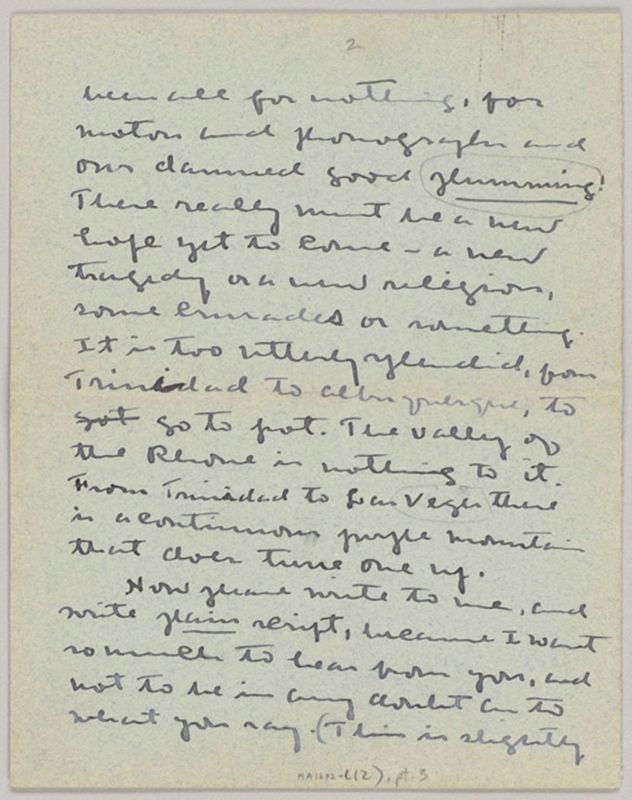 2
been all for nothing, for
motors and phonographs and
our damned good plumming!
There really must be a new
hope yet to come – a new
tragedy or a new religion,
some crusades or something.
It is too utterly splendid, from
Trinidad to Albuquerque, to
got go to pot. The valley of
the Rhone is nothing to it.
From Trinidad to Las Vegas there
is a continuous purple mountain
that does tune one up.
Now please write to me, and
write plain script, because I want
so much to hear from you, and
not to be in any doubt as to
what you say. (This is slightly
MA1602-L(2), pt. 3